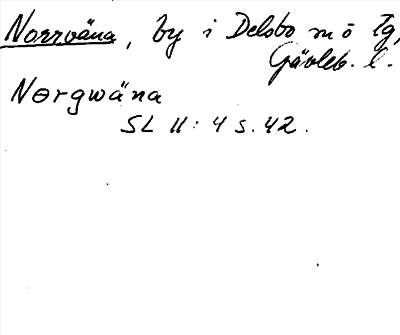 Norrväna, by i Delsbo m o Tg,
Gävleb. l.
Norgwäna
SL II: 4 s. 42.